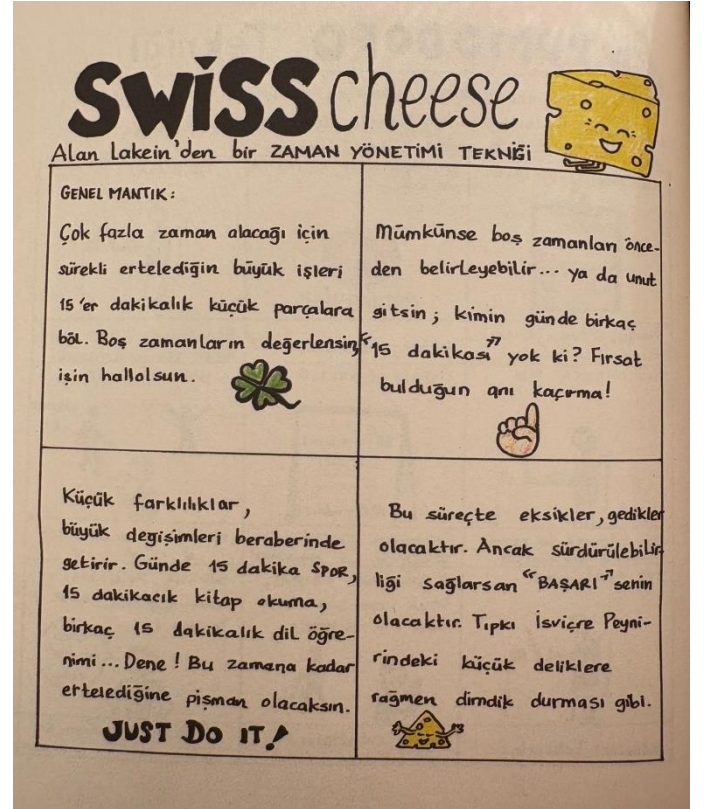 SWiSS cheese
Alan Lakein'den bir ZAMAN YÖNETİMİ TEKNİĞİ
GENEL MANTIK:
Çok fazla zaman alacağı için
sürekli ertelediğin büyük işleri
15'er dakikalık küçük parçalara
böl. Boş zamanların değerlensin,
işin hallolsun.
Mümkünse boş zamanları önce-
den belirleyebilir... ya da unut
gitsin; kimin günde birkaç
"15 dakikası" yok ki? Fırsat
bulduğun anı kaçırma!
Küçük farklılıklar,
büyük degişimleri beraberinde
getirir. Günde 15 dakika SPOR,
15 dakikacık kitap okuma,
birkaç 15 dakikalık dil öğre-
nimi... Dene! Bu zamana kadar
ertelediğine pişman olacaksın.
JUST DO IT!
Bu süreçte eksikler, gedikler
olacaktır. Ancak sürdürülebilir
liği sağlarsan "BAŞARI" senin
olacaktır. Tıpkı İsviçre Peyni-
rindeki küçük deliklere
rağmen dimdik durması gibi.